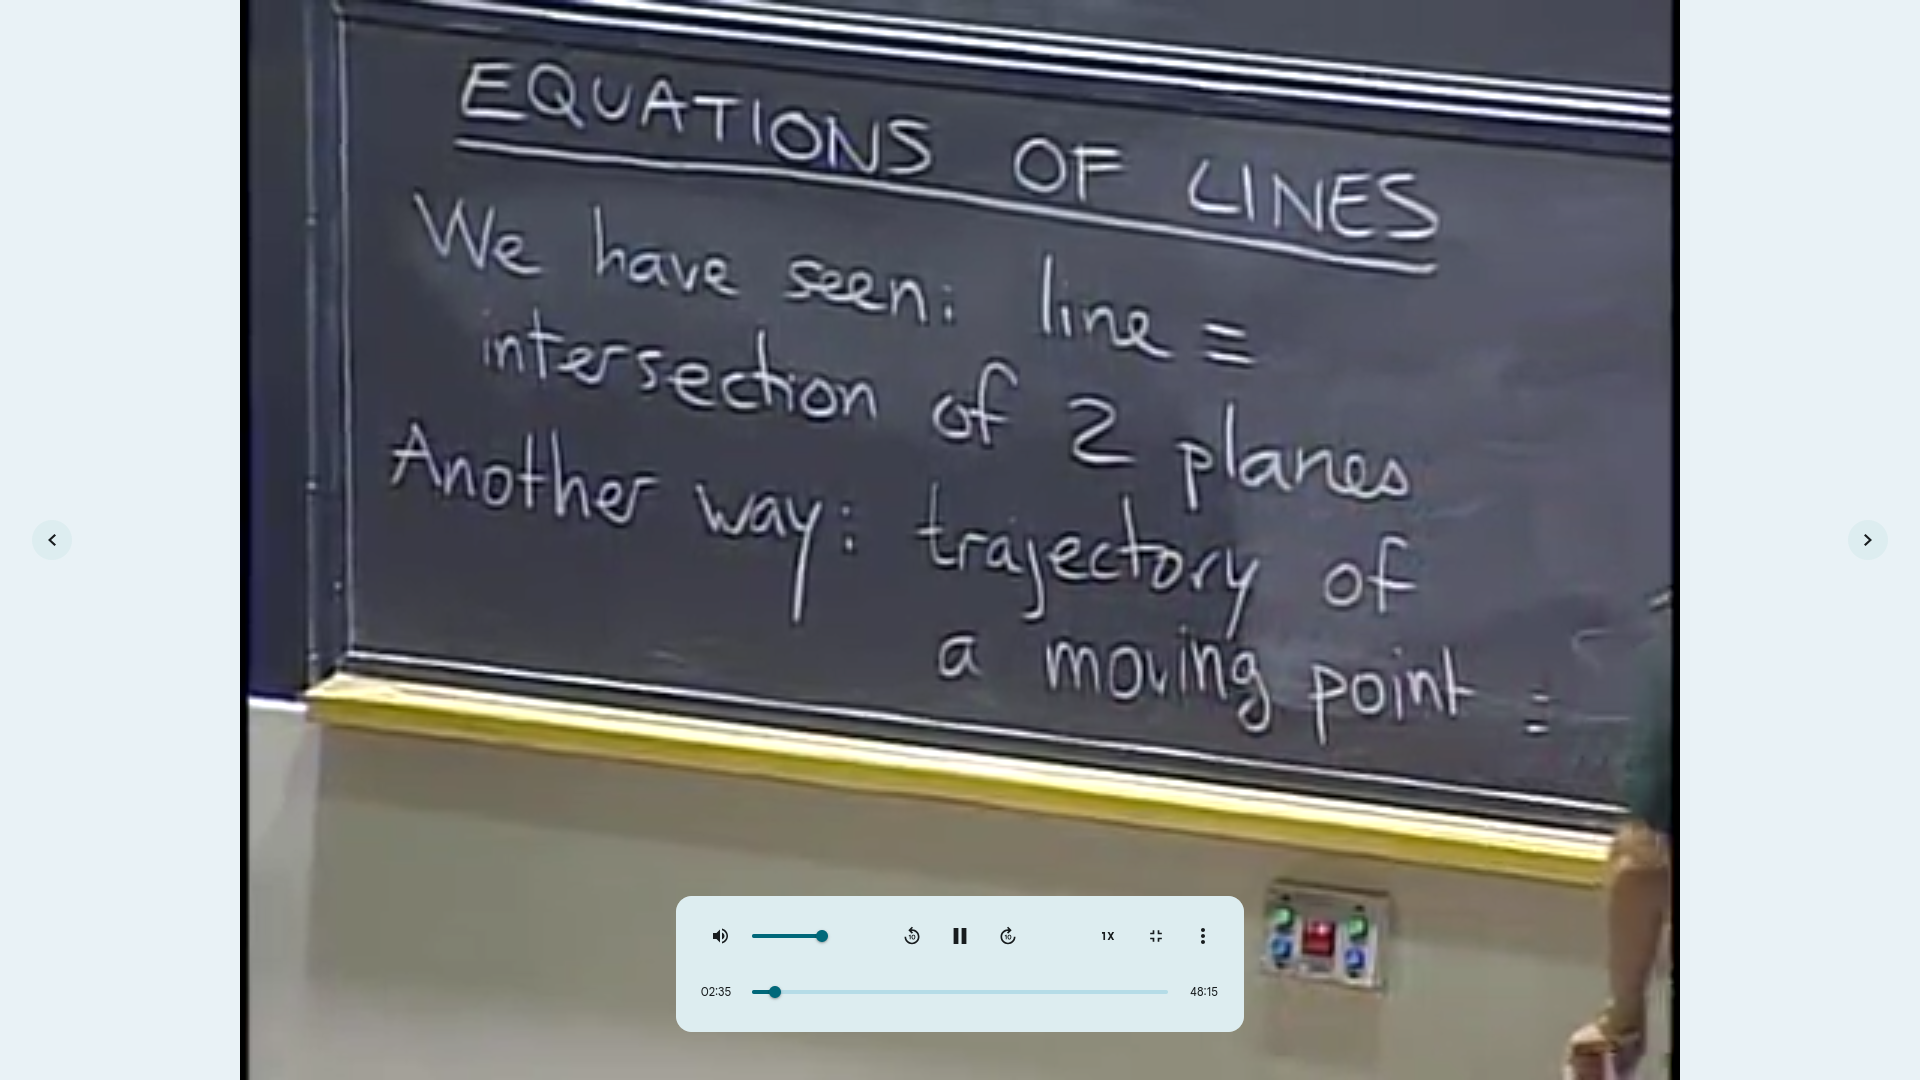 EQUATIONS OF LINES
We have seen: line =
intersection of 2 planes
Another way: trajectory of
a moving point =
1X
02:35
48:15